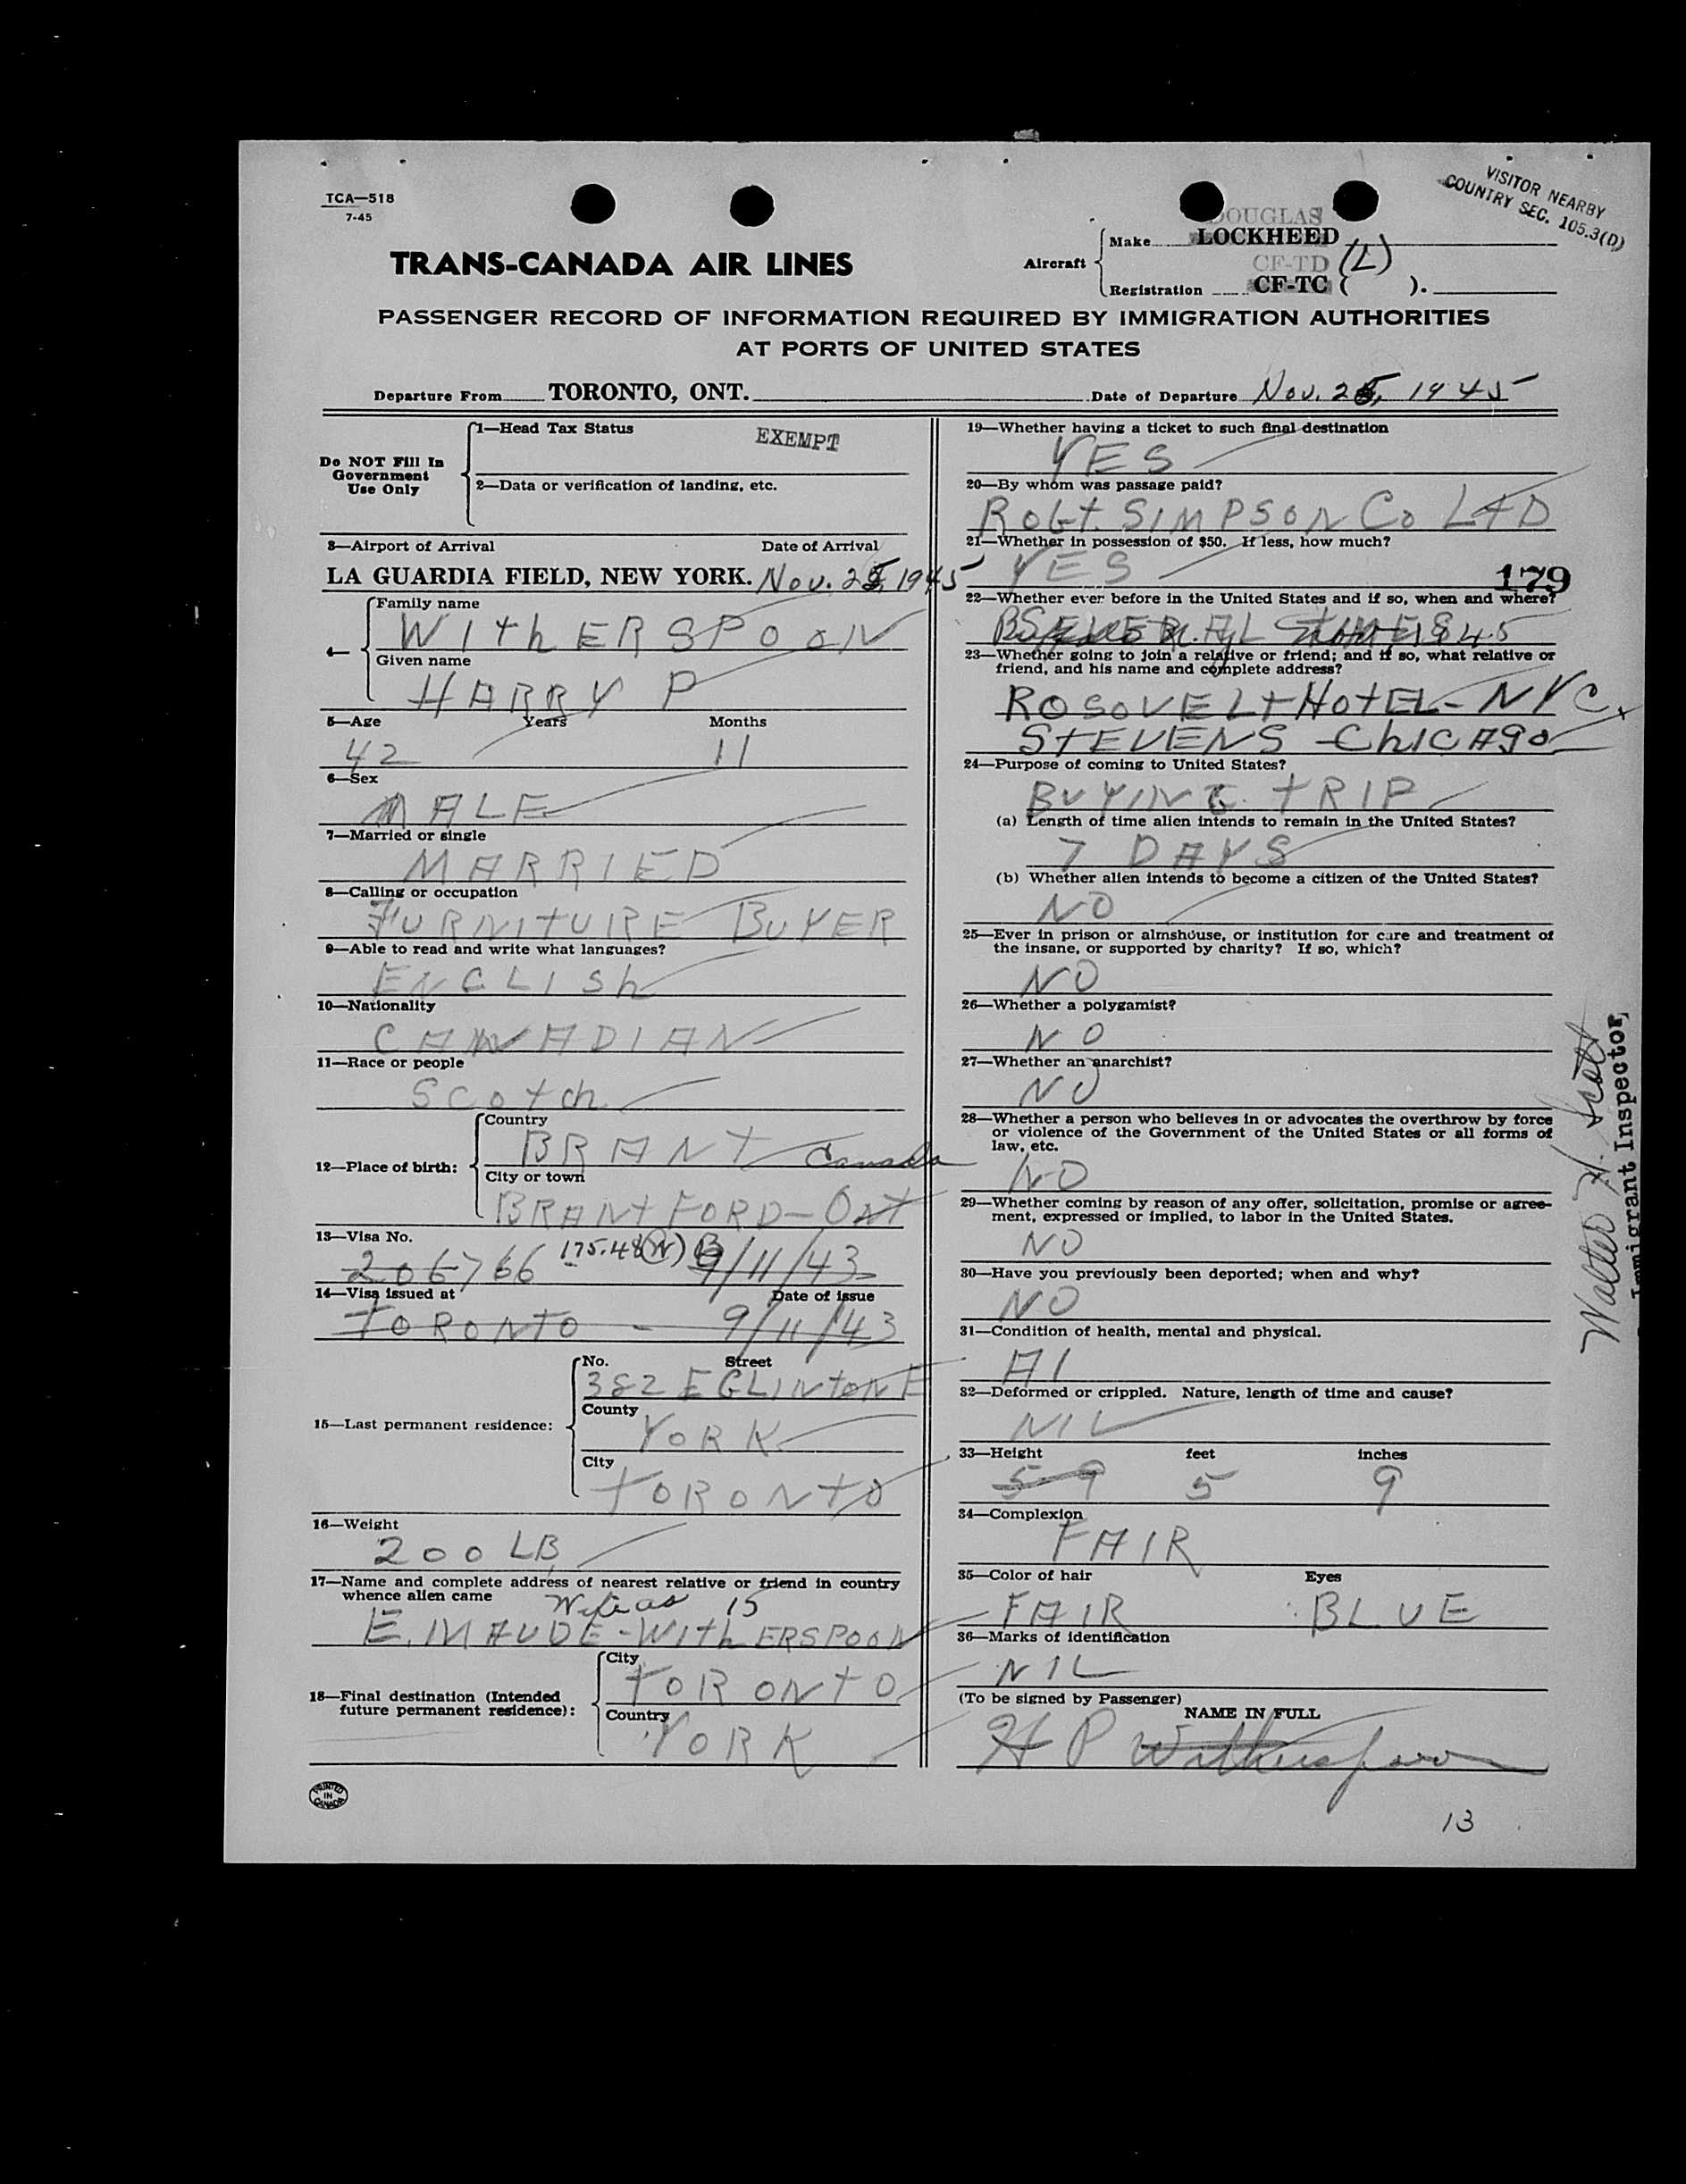 VISITOR NEARBY
COUNTRY SEC. 105.3(D)
TCA—518
7-45
DOUGLAS
Make LOCKHEED
TRANS-CANADA AIR LINES
Aircraft
CF-TD (L)
Registration CF-TC ( ).
PASSENGER RECORD OF INFORMATION REQUIRED BY IMMIGRATION AUTHORITIES
AT PORTS OF UNITED STATES
Departure From TORONTO, ONT. Date of Departure Nov. 25, 1945
Do NOT Fill In
Government
Use Only
1—Head Tax Status EXEMPT
2—Data or verification of landing, etc.
3—Airport of Arrival Date of Arrival
LA GUARDIA FIELD, NEW YORK. Nov. 25, 1945
4—
Family name
WIthERSPOON
Given name
HARRY P
5—Age Years Months
42 11
6—Sex
MALE
7—Married or single
MARRIED
8—Calling or occupation
FURNITURE BUYER
9—Able to read and write what languages?
ENGLISh
10—Nationality
CANADIAN
11—Race or people
SCOtch
12—Place of birth:
Country
BRANT Canada
City or town
BRANtFORD-ONT
13—Visa No.
206766 175.48(N) 9/11/43
14—Visa issued at Date of issue
TORONTO - 9/11/43
15—Last permanent residence:
No. Street
382 EGLINtON E
County
YORK
City
TORONTO
16—Weight
200 LB
17—Name and complete address of nearest relative or friend in country
whence alien came
Wife as 15
E. MAUDE-WIthERSPOON
18—Final destination (Intended
future permanent residence):
City
TORONTO
Country
YORK
PRINTED
IN
CANADA
19—Whether having a ticket to such final destination
YES
20—By whom was passage paid?
Robt. SIMPSON Co LtD
21—Whether in possession of $50. If less, how much?
YES
179
22—Whether ever before in the United States and if so, when and where?
SEVERAL 1945
23—Whether going to join a relative or friend; and if so, what relative or
friend, and his name and complete address?
ROSOVELt HOtEL-NYC.
STEVENS-ChICAgo
24—Purpose of coming to United States?
BUYING tRIP
(a) Length of time alien intends to remain in the United States?
7 DAYS
(b) Whether alien intends to become a citizen of the United States?
NO
25—Ever in prison or almshouse, or institution for care and treatment of
the insane, or supported by charity? If so, which?
NO
26—Whether a polygamist?
NO
27—Whether an anarchist?
NO
28—Whether a person who believes in or advocates the overthrow by force
or violence of the Government of the United States or all forms of
law, etc.
NO
29—Whether coming by reason of any offer, solicitation, promise or agree-
ment, expressed or implied, to labor in the United States.
NO
30—Have you previously been deported; when and why?
NO
31—Condition of health, mental and physical.
A1
32—Deformed or crippled. Nature, length of time and cause?
NIL
33—Height feet inches
5-9 5 9
34—Complexion
FAIR
35—Color of hair Eyes
FAIR BLUE
36—Marks of identification
NIL
(To be signed by Passenger)
NAME IN FULL
H P Witherspoon
13
Walter H. Scott
Immigrant Inspector,